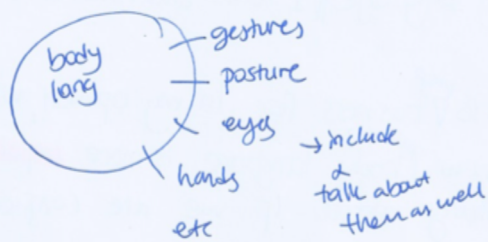 body
lang
gestures
posture
eyes
hands
etc
→ include
&
talk about
them as well